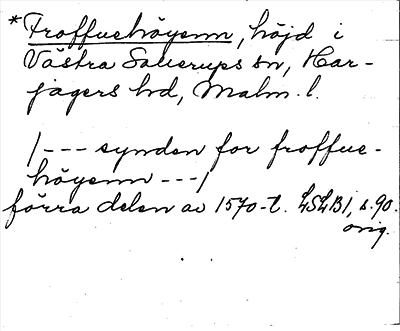 *Froffuehöyenn, höjd i
Västra Sallerups sn, Har-
jagers hd, Malm. l.
/--- synden for froffue-
höyenn ---/
förra delen av 1570-t. LSLB1, s. 90.
orig.